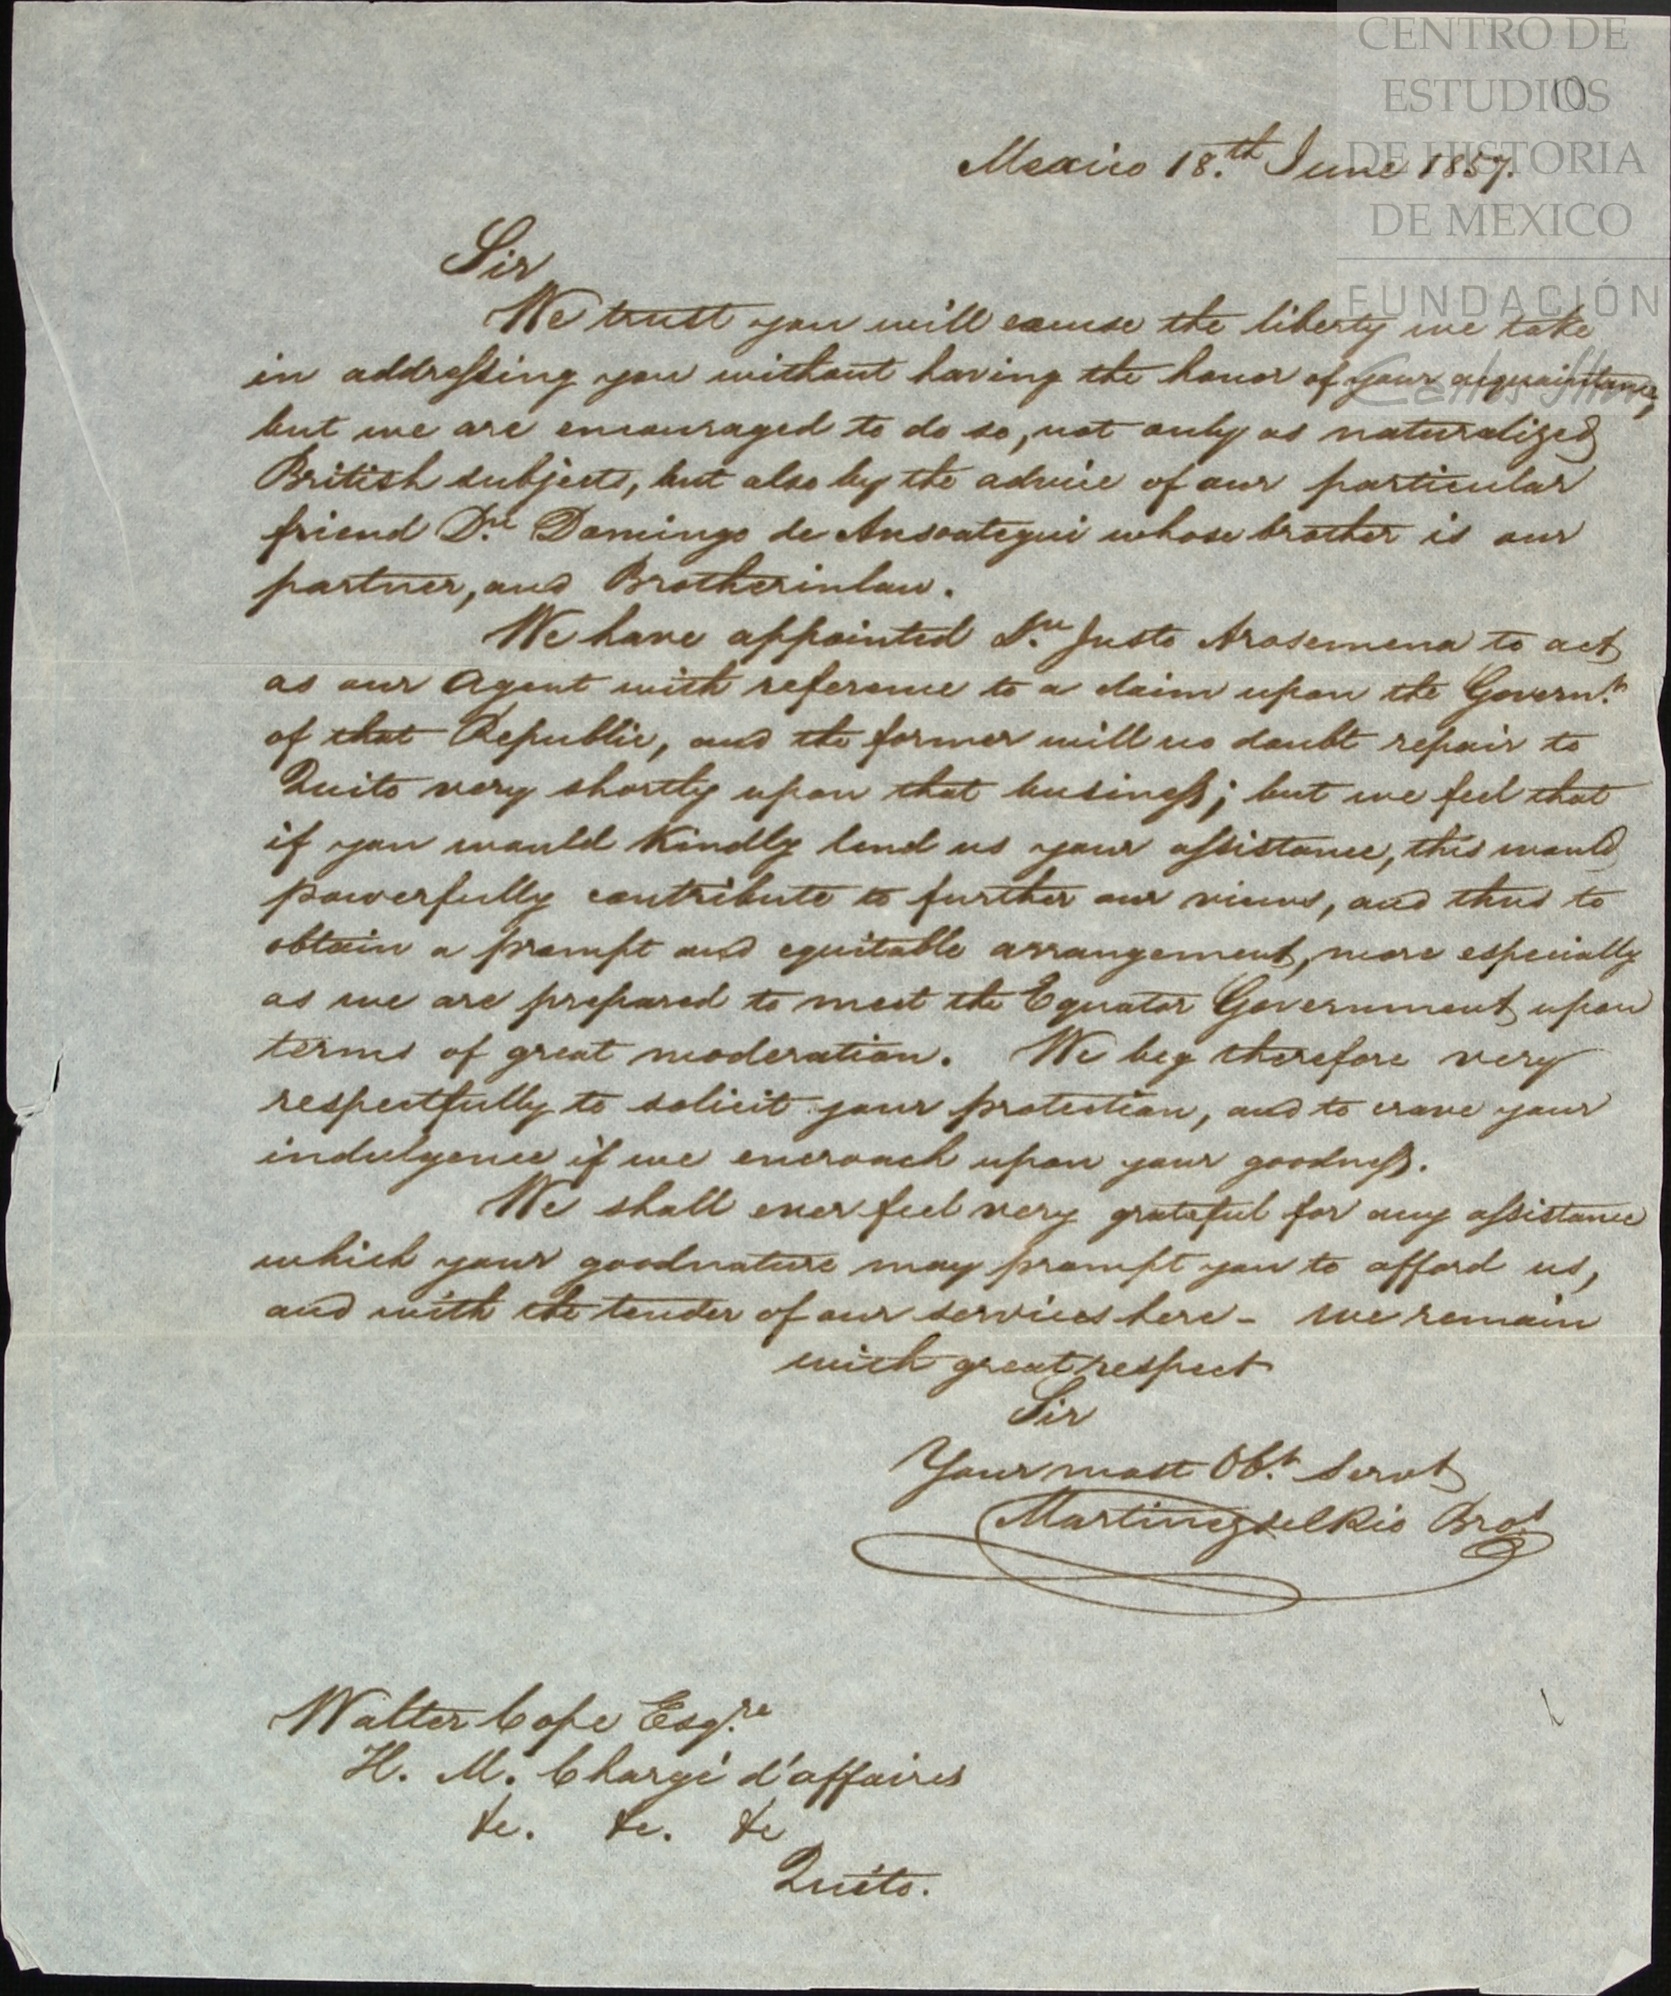 CENTRO DE
ESTUDIOS
10
DE HISTORIA
DE MEXICO
FUNDACIÓN
Carlos Slim
Mexico 18.th June 1857.
Sir
We trust you will excuse the liberty we take
in addressing you without having the honor of your acquaintance,
but we are encouraged to do so, not only as naturalized
British subjects, but also by the advice of our particular
friend Dn. Domingo de Ansoategui whose brother is our
partner, and Brotherinlaw.
We have appointed Dn. Justo Arosemena to act
as our Agent with reference to a claim upon the Governt.
of that Republic, and the former will no doubt repair to
Quito very shortly upon that business; but we feel that
if you would kindly lend us your assistance, this would
powerfully contribute to further our views, and thus to
obtain a prompt and equitable arrangement, more especially
as we are prepared to meet the Equator Government upon
terms of great moderation. We beg therefore very
respectfully to solicit your protection, and to crave your
indulgence if we encroach upon your goodness.
We shall ever feel very grateful for any assistance
which your goodnature may prompt you to afford us,
and with the tender of our services here - we remain
with great respect
Sir
Your most Obt. Servt
Martinez del Rio Bros
Walter Cope Esqre.
H. M. Chargé d'affaires
&c. &c. &c
Quito.